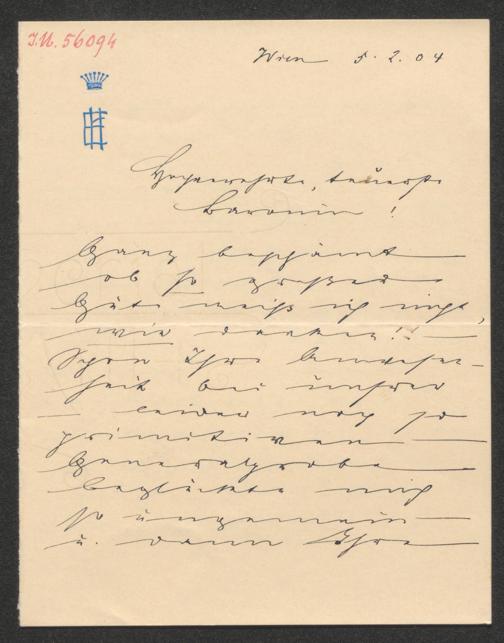 I.N. 56094
Wien 5. 2. 04
Hochverehrte, teuerste
Baronin!
Ganz beschämt
ob so großer
Güte weiß ich nicht,
wie danken! –
Schon Ihre Anwesen-
heit bei unsrer
– leider noch so
primitiven –
Generalprobe
beglückte mich
so ungemein –
u. dann Ihre